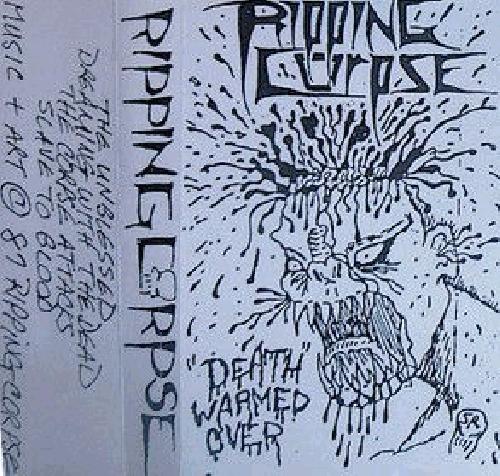 RIPPING
CORPSE
"DEATH"
WARMED
OVER
RIPPING CORPSE
THE UNBLESSED
DREAMING WITH THE DEAD
THE CORPSE ATTACKS
SLAVE TO BLOOD
MUSIC + ART © 87 RIPPING CORPSE